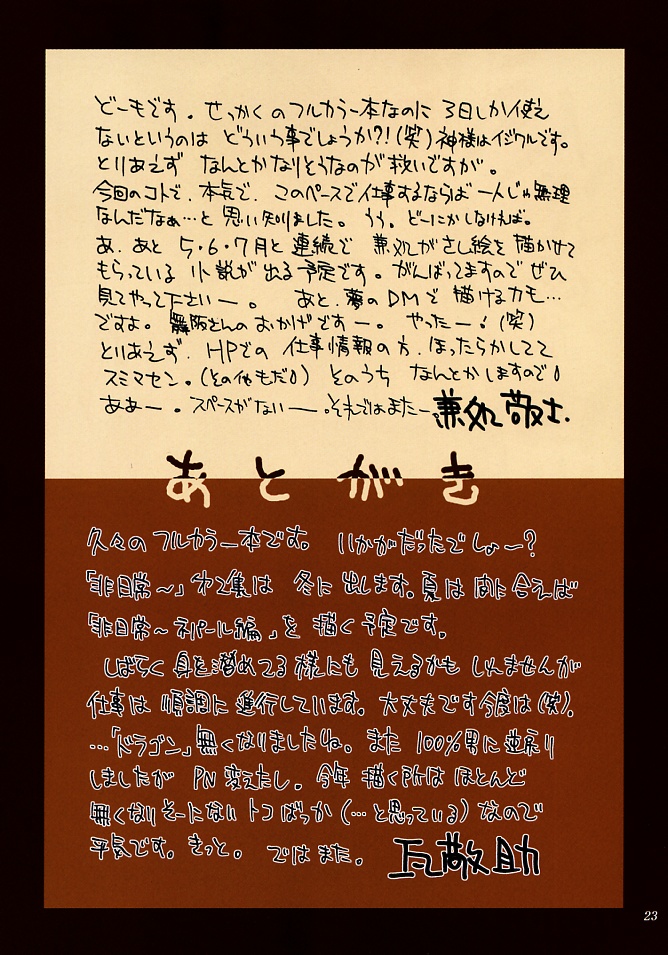 どーもです。せっかくのフルカラー本なのに 3日しか使え
ないというのは どういう事でしょうか?!(笑)神様はイジワルです。
とりあえず なんとかなりそうなのが救いですが。
今回のコトで、本気で、このペースで仕事するならば一人じゃ無理
なんだなぁ…と 思い知りました。うう。どーにかしなければ。
あ、あと 5・6・7月と連続で 兼処がさし絵を描かせて
もらっている 小説が出る予定です。がんばってますのでぜひ
見てやって下さいー。 あと、夢のDMで 描けるカモ…
ですよ。舞阪さんのおかげですー。 やったー!(笑)
とりあえず、HPでの 仕事情報の方、ほったらかしてて
スミマセン。(その他もだ!) そのうち なんとかしますので!
ああー。スペースがないー。それではまたー。兼処敬士.
あとがき
久々の フルカラー本です。 いかがだったでしょー?
「非日常〜」第2集は 冬に出します。夏は間に合えば
「非日常〜ネパール編」を 描く予定です。
しばらく 身を潜めてる様にも 見えるかも しれませんが
仕事は 順調に進行しています。大丈夫です今度は(笑)。
…「ドラゴン」無くなりましたしね。また 100%男に逆戻り
しましたが PN変えたし。今年 描く所は ほとんど
無くなりそーにない トコばっか(…と思っている)なので
平気です。きっと。 ではまた。 瓦敬助
23